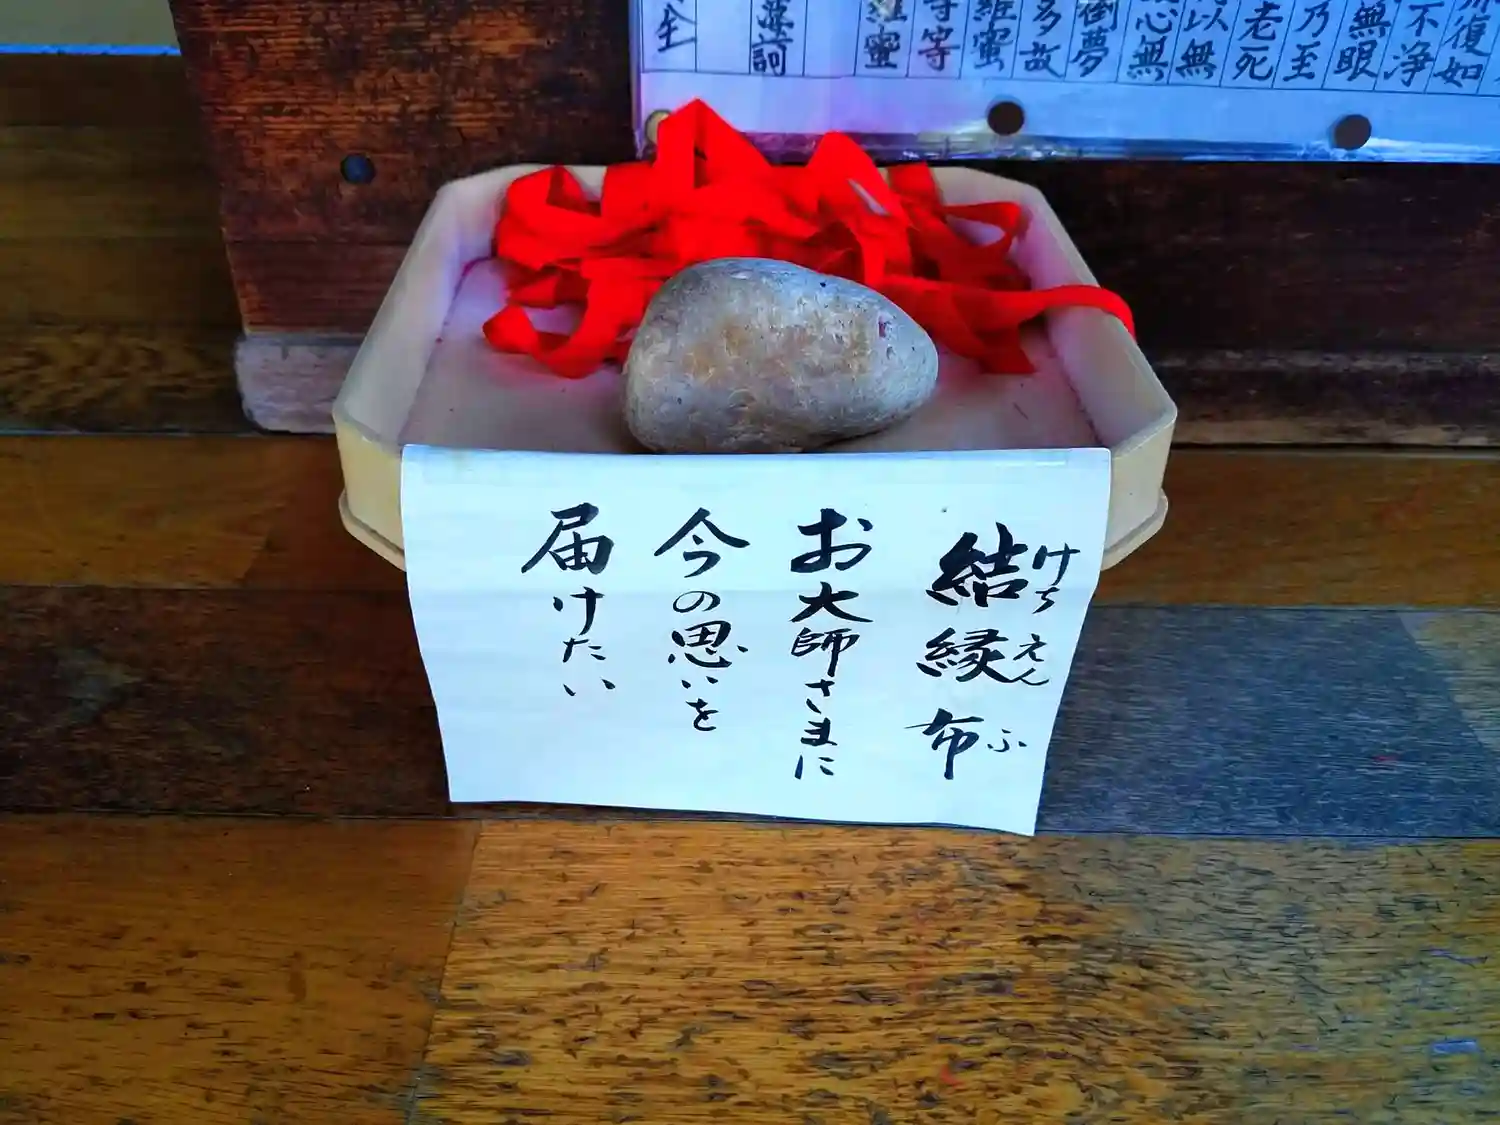 結縁布
けちえんふ
お大師さまに
今の思いを
届けたい
復如
不浄
無眼
乃至
老死
以無
心無
倒夢
多故
羅蜜
等等
羅蜜
訶